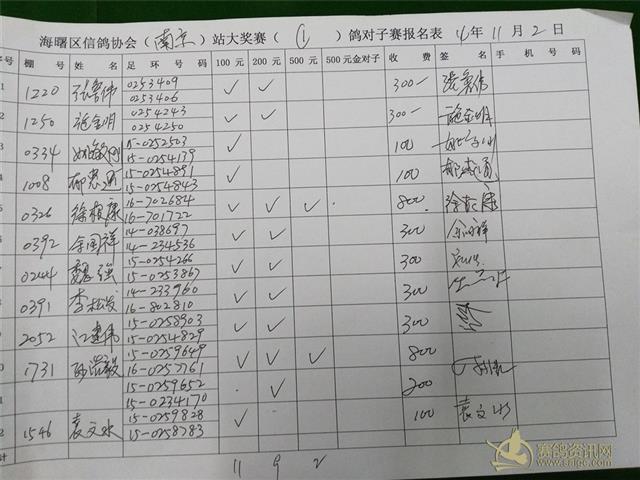 海曙区信鸽协会(南京)站大奖赛(①)鸽对子赛报名表 年11月2日
序号 棚号 姓名 足环号码 100元 200元 500元 500元金对子 收费 签名 手机号码
1220 0253409 ✓ ✓ 300
0253406
1250 施金明 0254243 ✓ ✓ 300 施金明
0254250
0334 15-0252503 ✓ 100
15-0254139
1008 15-0254891 ✓ 100
15-0254843
0326 徐根康 16-702684 ✓ ✓ ✓ 800
16-701722
0392 余国祥 14-038697 ✓ ✓ 300
14-234536
0244 魏强 15-0254266 ✓ ✓ 300
15-0253867
0391 李松 14-233960 ✓ ✓ 300
16-802810
2052 江建伟 15-0258903 ✓ ✓ 300
15-0254829
1731 15-0259649 ✓ ✓ ✓ 800
16-0257761
15-0259652 ✓ 200
15-0234170
1546 袁文水 15-0259828 ✓ 100 袁文水
15-0258783
计 11 9 2
赛鸽资讯网
www.saige.com